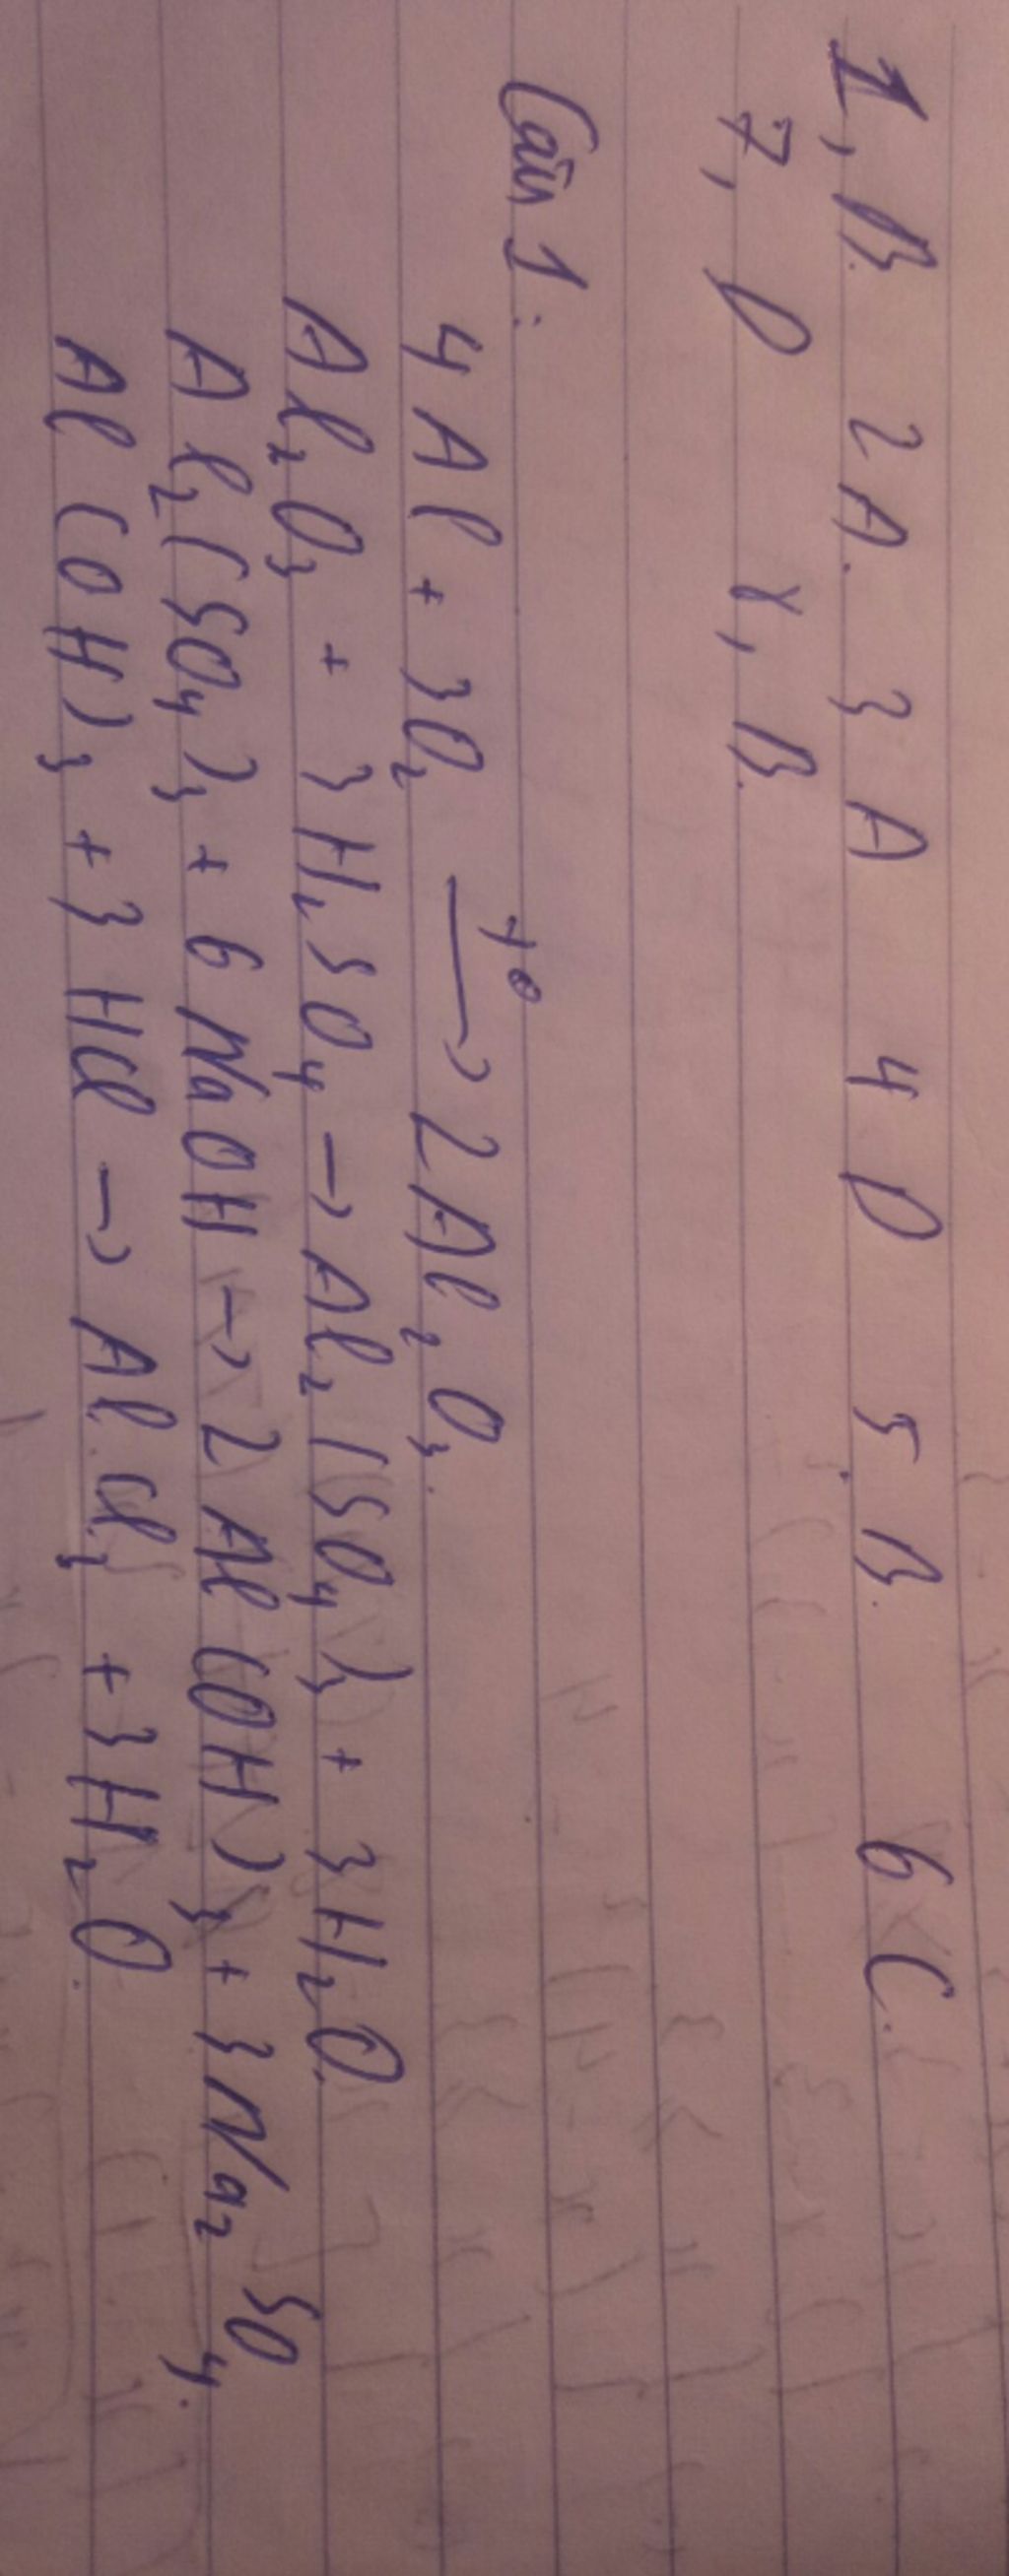 1, B. 2 A. 3 A 4 D 5. B. 6 C.
7, D 8, B.
Câu 1:
4 Al + 3O₂ —t°→ 2 Al₂O₃.
Al₂O₃ + 3 H₂SO₄ → Al₂(SO₄)₃ + 3H₂O.
Al₂(SO₄)₃ + 6 NaOH → 2 Al(OH)₃ + 3 Na₂SO₄.
Al(OH)₃ + 3 HCl → AlCl₃ + 3 H₂O.